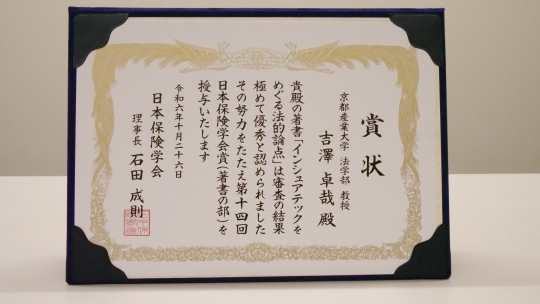 賞状
京都産業大学 法学部 教授
吉澤 卓哉 殿
貴殿の著書「インシュアテックを
めぐる法的論点」は審査の結果
極めて優秀と認められました
その努力をたたえ第十四回
日本保険学会賞(著書の部)を
授与いたします
令和六年十月二十六日
日本保険学会
理事長 石田 成則